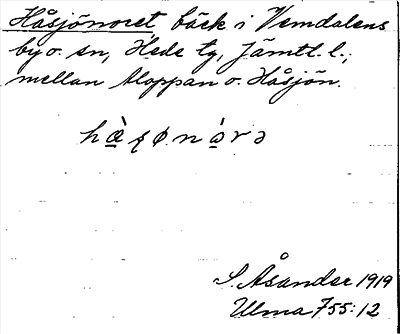 Håsjönoret, bäck i Vemdalens
by o. sn, Hede tg, Jämtl. l.;
mellan Aloppan o. Håsjön.
S. Åsander 1919
Ulma 755:12